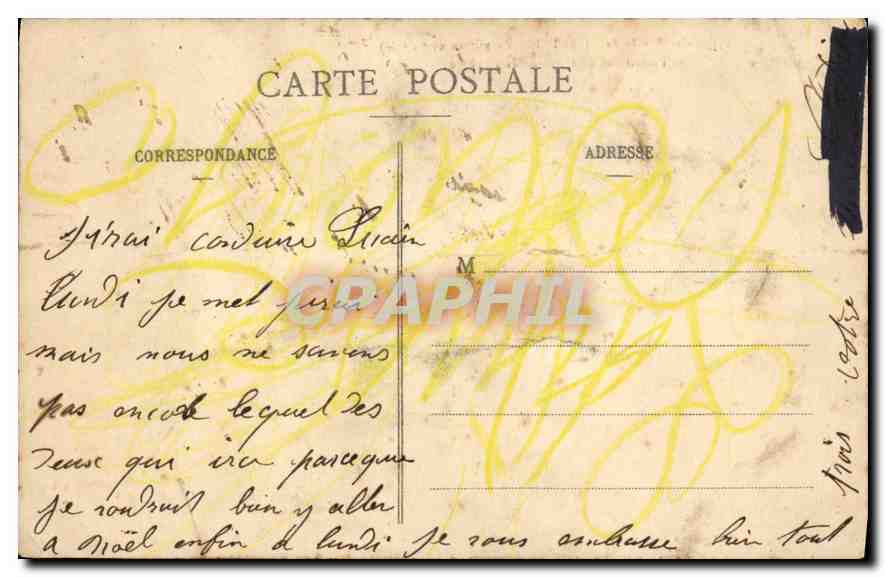 CARTE POSTALE
CORRESPONDANCE
ADRESSE
M
CPAPHIL
J'irai conduire Lucien
lundi je met
mais nous ne savons
pas encore lequel des
deux qui ira parceque
je voudrait bien y aller
a Noël enfin a lundi je vous embrasse bien tout
trois votre